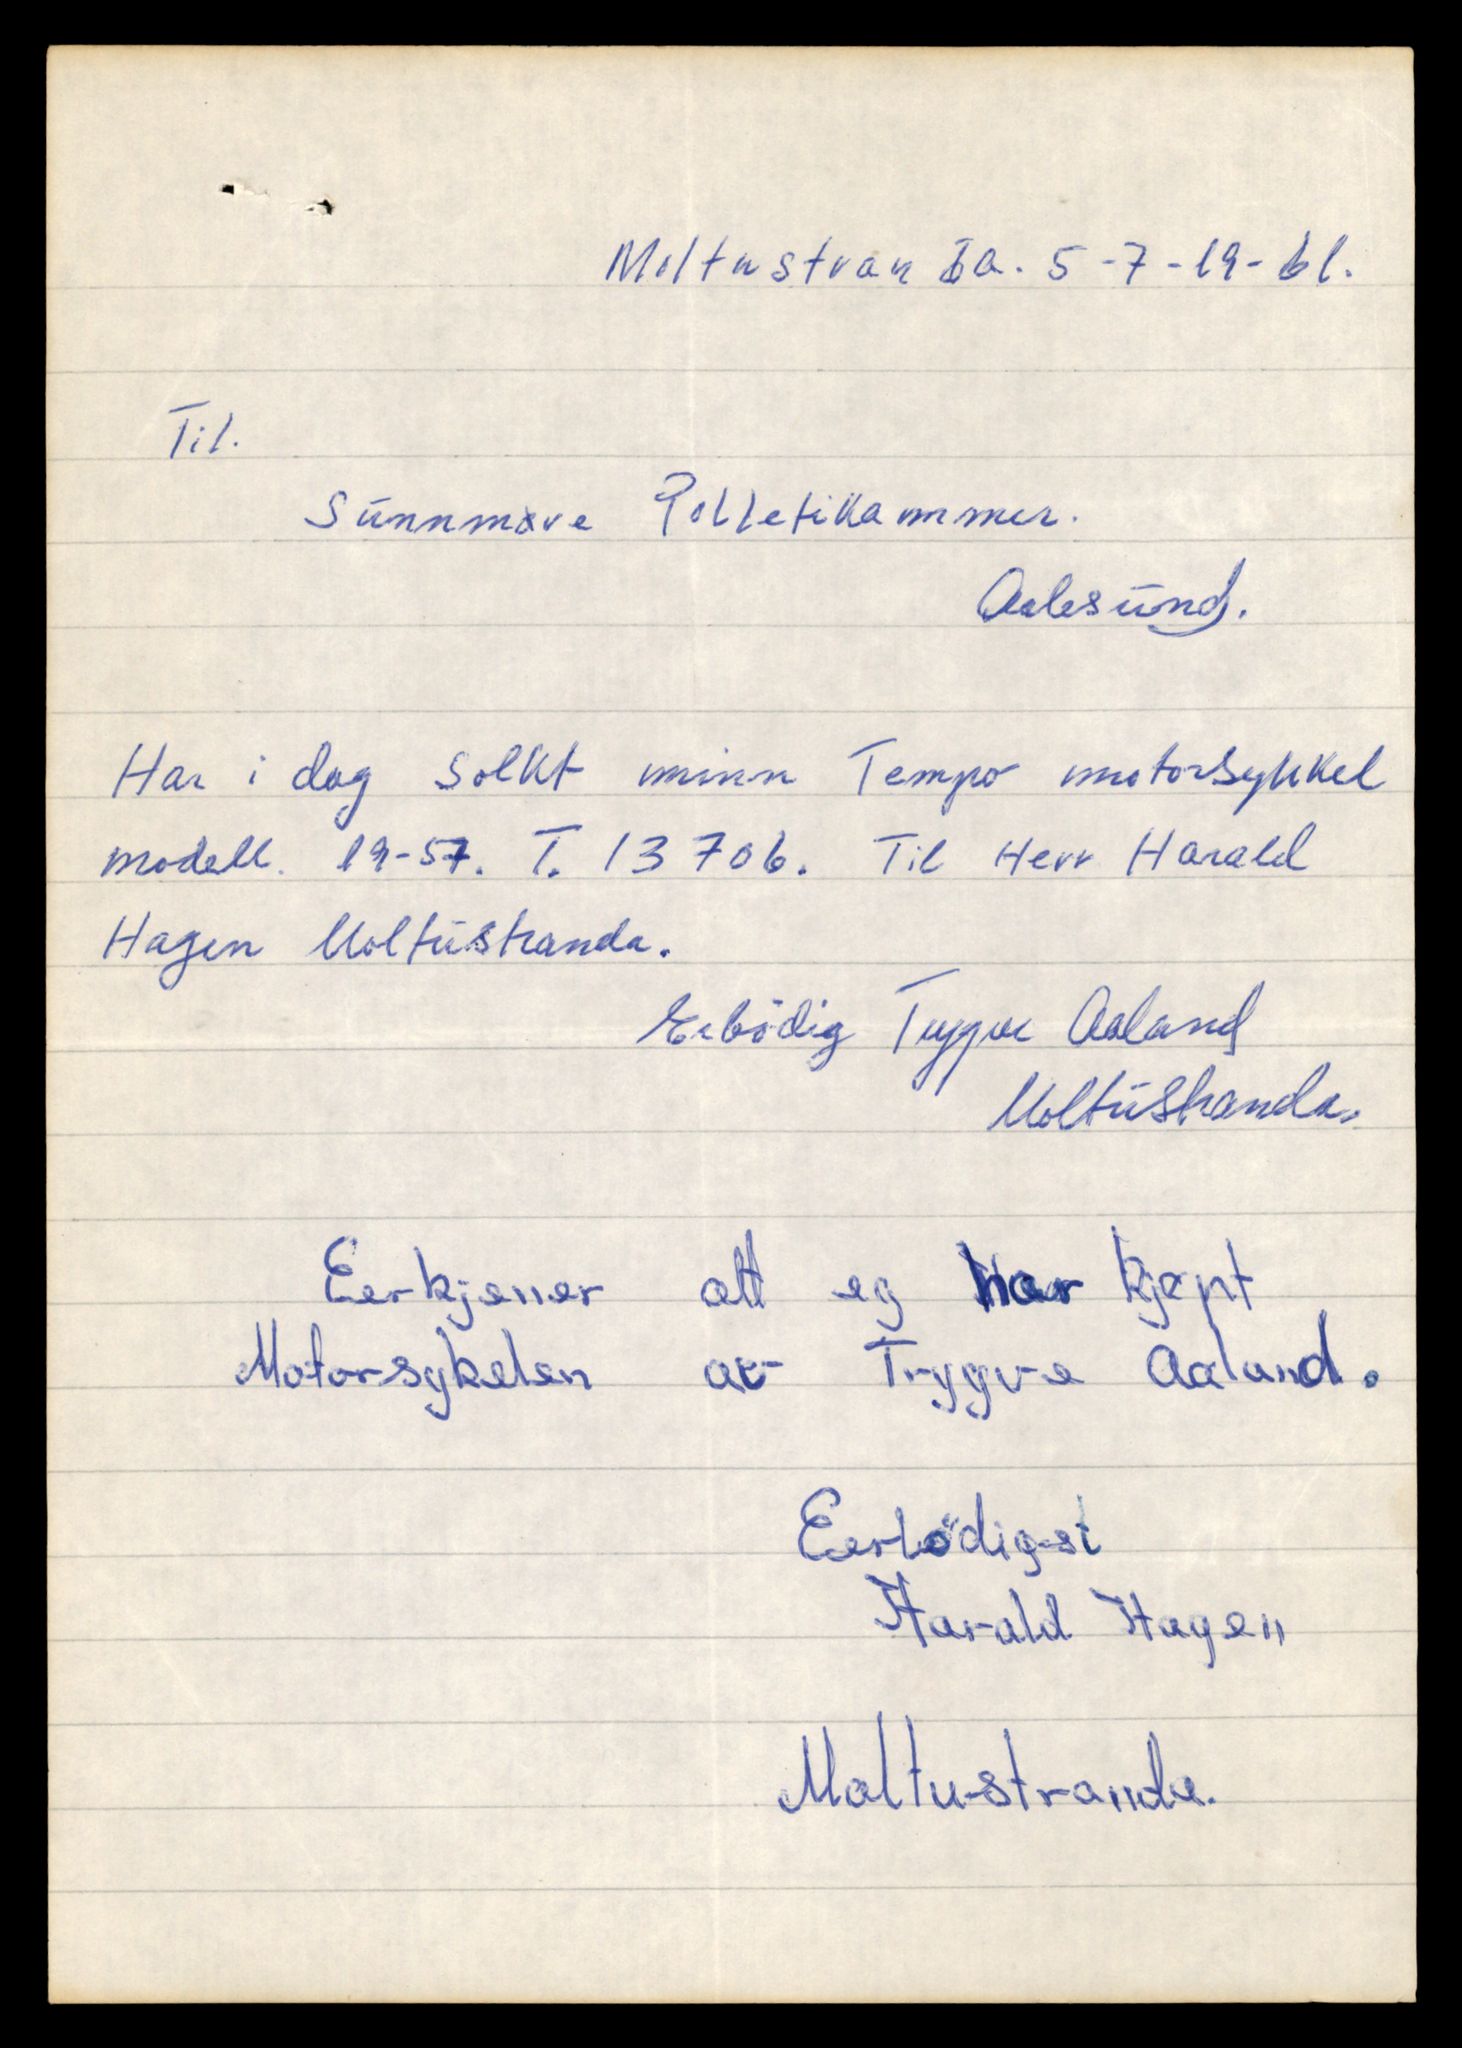 Moltustranda. 5-7-19-61.
Til.
Sünnmøre Polletikammer.
Aalesünd.
Har i dag Solkt minn Tempo motorsykkel
modell. 19-57. T. 13706. Til Herr Harald
Hagen Moltüstranda.
Erbödig Trygve Aaland
Moltüstranda.
Eerkjener att eg har kjøpt
Motorsykelen av Trygve Aaland.
Eerbödigst
Harald Hagen
Moltustranda.